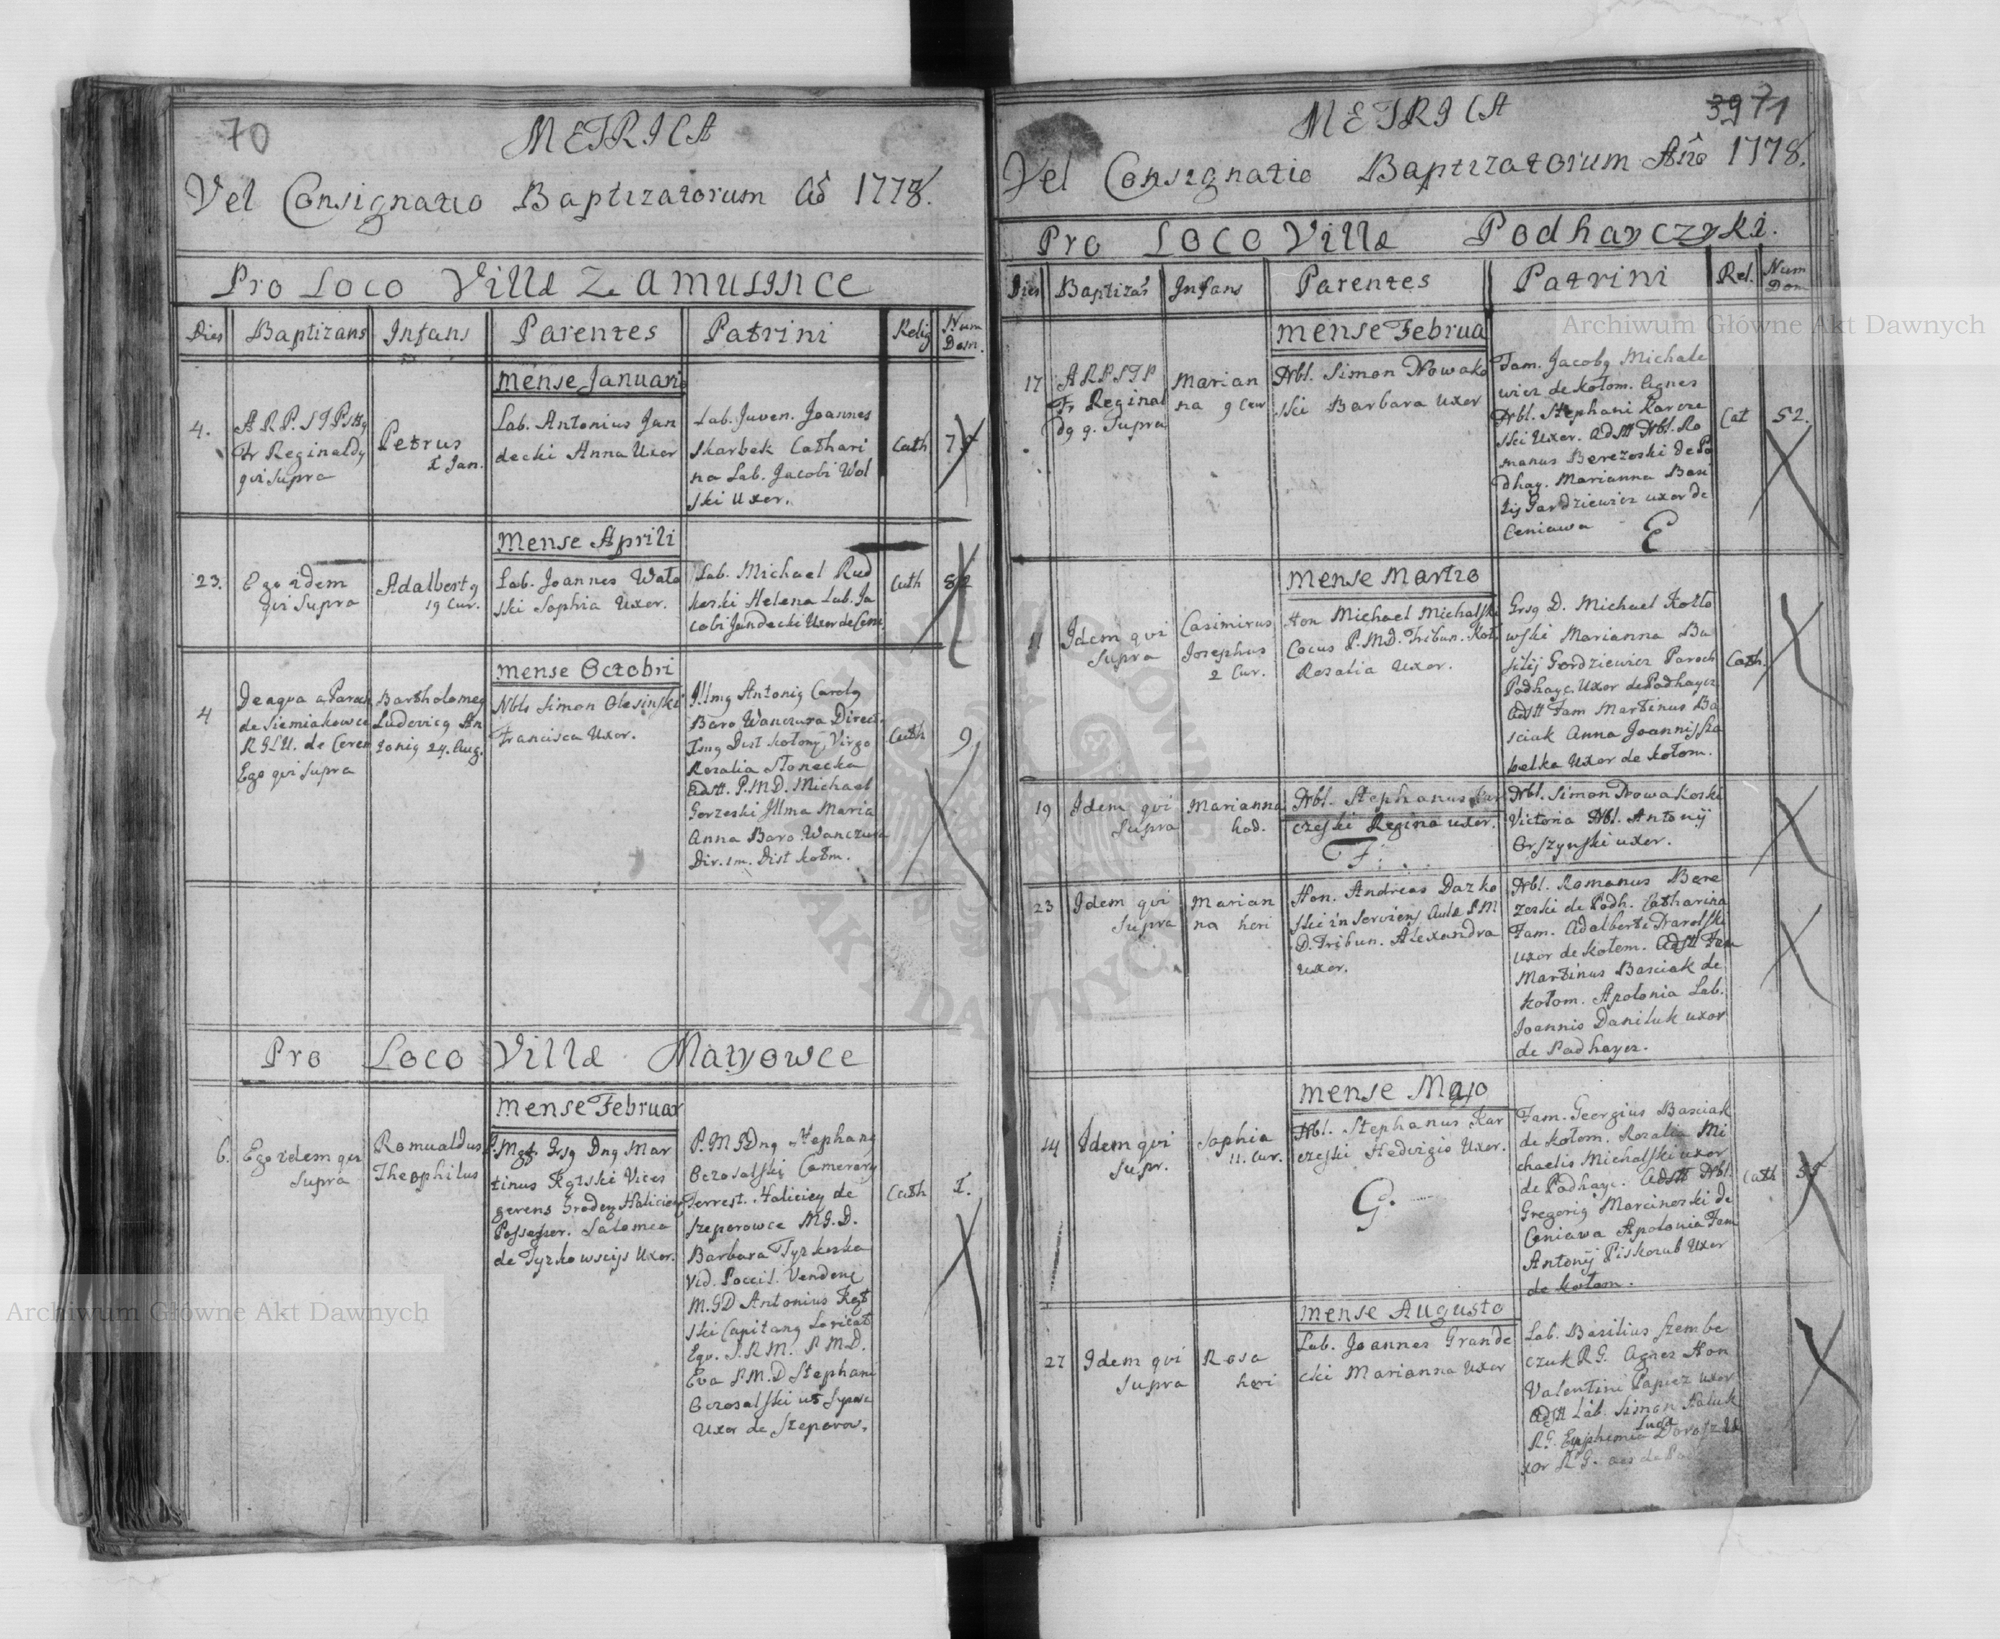 70
METRICA
Vel Consignatio Baptizatorum Aō 1778.
Pro Loco Villæ ZAMULINCE
Dies Baptizans Infans Parentes Patrini Relig Num Dom.
Mense Januario
4.
A R P. STPstq
Fr Reginaldq
qui supra
Petrus
Jan.
Lab. Antonius Jan
decki Anna Uxor
Lab. Juven. Joannes
Skarbek Cathari
na Lab. Jacobi Wol
ski Uxor.
Cath
Mense Aprili
23.
Ego idem
qui supra
Adalbertq
19 Cur.
Lab. Joannes Wato
ski Sophia Uxor.
Lab. Michael Rud
koski Helena Lab. Ja
cobi Jandecki Uxor de Ceni
Cath
82
Mense Octobri
4
De aqua a Paroch
de Siemiakowce
R.G.L.U. de Cerem
Ego qui supra
Bartholomeq
Ludovicq An
toniq 24. Aug.
Nbls Simon Olesinski
Francisca Uxor.
Jllmq Antoniq Carolq
Baro Wanczura Direct.
Dist kołom, Virgo
Rozalia Słonecka
Adstt. P.M.D. Michael
Gorzeski Jllma Maria
Anna Baro Wanczura
Dir. im. Dist kołm.
Cath
9
Pro Loco Villæ Matyowce
Mense Februar
6.
Ego idem qui
supra
Romualdus
Theophilus
P. Mgf. Grsq Dnq Mar
tinus Kgtski Vices
gerens Groden Haliciey
Possessor. Salomea
de Tyzkowscijs Uxor.
P. M G Dnq Stephanq
Ocrosalski Camerarq
Terrest. Haliciey de
Szeporowce M.G.D.
Barbara Tyzkoska
Vid. Poccil. Venden
M.GD Antonius Kgt
ski Capitanq Loricat
Equ. S.R.M. P.M.D.
Eva P.M.D Stephani
Ocrosalski ut supra
Uxor de Szeporow.
Cath
1.
39 71
METRICA
Vel Consignatio Baptizatorum Año 1778.
Pro LOCO Villæ Podhayczyki.
Dies Baptizās Infans Parentes Patrini Rel. Num Dom
Mense Februa
17
A R P S T P
Fr Reginal
dq q. Supra
Marian
na 9 Cur
Nbl. Simon Nowako
ski Barbara Uxor
Fam. Jacobq Michale
wicz de kołom. Agnes
Nbl. Stephani Karcze
ski Uxor. Adstt Nbl. Ro
manus Berezoski de Po
dhay. Marianna Basi
lij Gordziewicz uxor de
Ceniawa
Cat
52.
Mense Martio
11
Idem qui
supra
Casimirus
Josephus
2 Cur.
Hon Michael Michalski
Cocus P.M.D. Tribun. Koł
Rosalia Uxor.
Grsq D. Michael Kotto
wski Marianna Ba
silij Gordziewicz Paroch
Podhayc. Uxor de Podhaycz
Adstt Fam Martinus Ba
sciak Anna Joannis Ska
belka Uxor de kołom.
Cath.
19
Idem qui
supra
Marianna
hod.
Nbl. Stephanus Kar
czeski Regina uxor.
F.
Nbl. Simon Nowakoski
Victoria Nbl. Antonij
Orszynski uxor.
23
Idem qui
supra
Marian
na heri
Hon. Andreas Dazko
ski inserviens Aulæ P.M
D. Tribun. Alexandra
uxor.
Nbl. Romanus Bere
zoski de Podh. Catharina
Fam. Adalberti Narolski
uxor de kołom. Adstt Fam
Martinus Basciak de
kołom. Apolonia Lab.
Joannis Daniluk uxor
de Podhaycz.
Mense Majo
14
Idem qui
supr.
Sophia
11. Cur.
Nbl. Stephanus Kar
czeski Hedvigis Uxor.
G.
Fam. Georgius Basciak
de kołom. Rozalia Mi
chaelis Michalski uxor
de Podhayc. Adstt Nbl.
Gregoriq Marcinoski de
Ceniawa Apolonia Fam
Antonij Piskozub Uxor
de kołom.
Cath
Mense Augusto
27
Idem qui
supra
Rosa
heri
Lab. Joannes Grande
cki Marianna Uxor
Lab. Basilius Szembe
czuk R.G. Agnes Hon
Valentini Papiez uxor
Adstt Lab. Simon Paluk
R.G. Euphemia Luca Dorosz U
xor R.G.
Archiwum Główne Akt Dawnych
Archiwum Główne Akt Dawnych